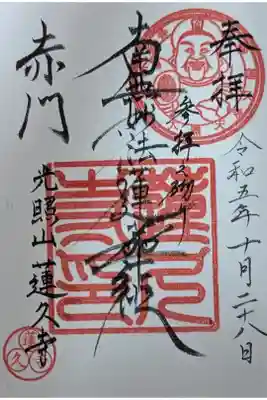 奉拝
令和五年十月二十八日
参拝之砌
南無妙法蓮華経
赤門
光照山蓮久寺